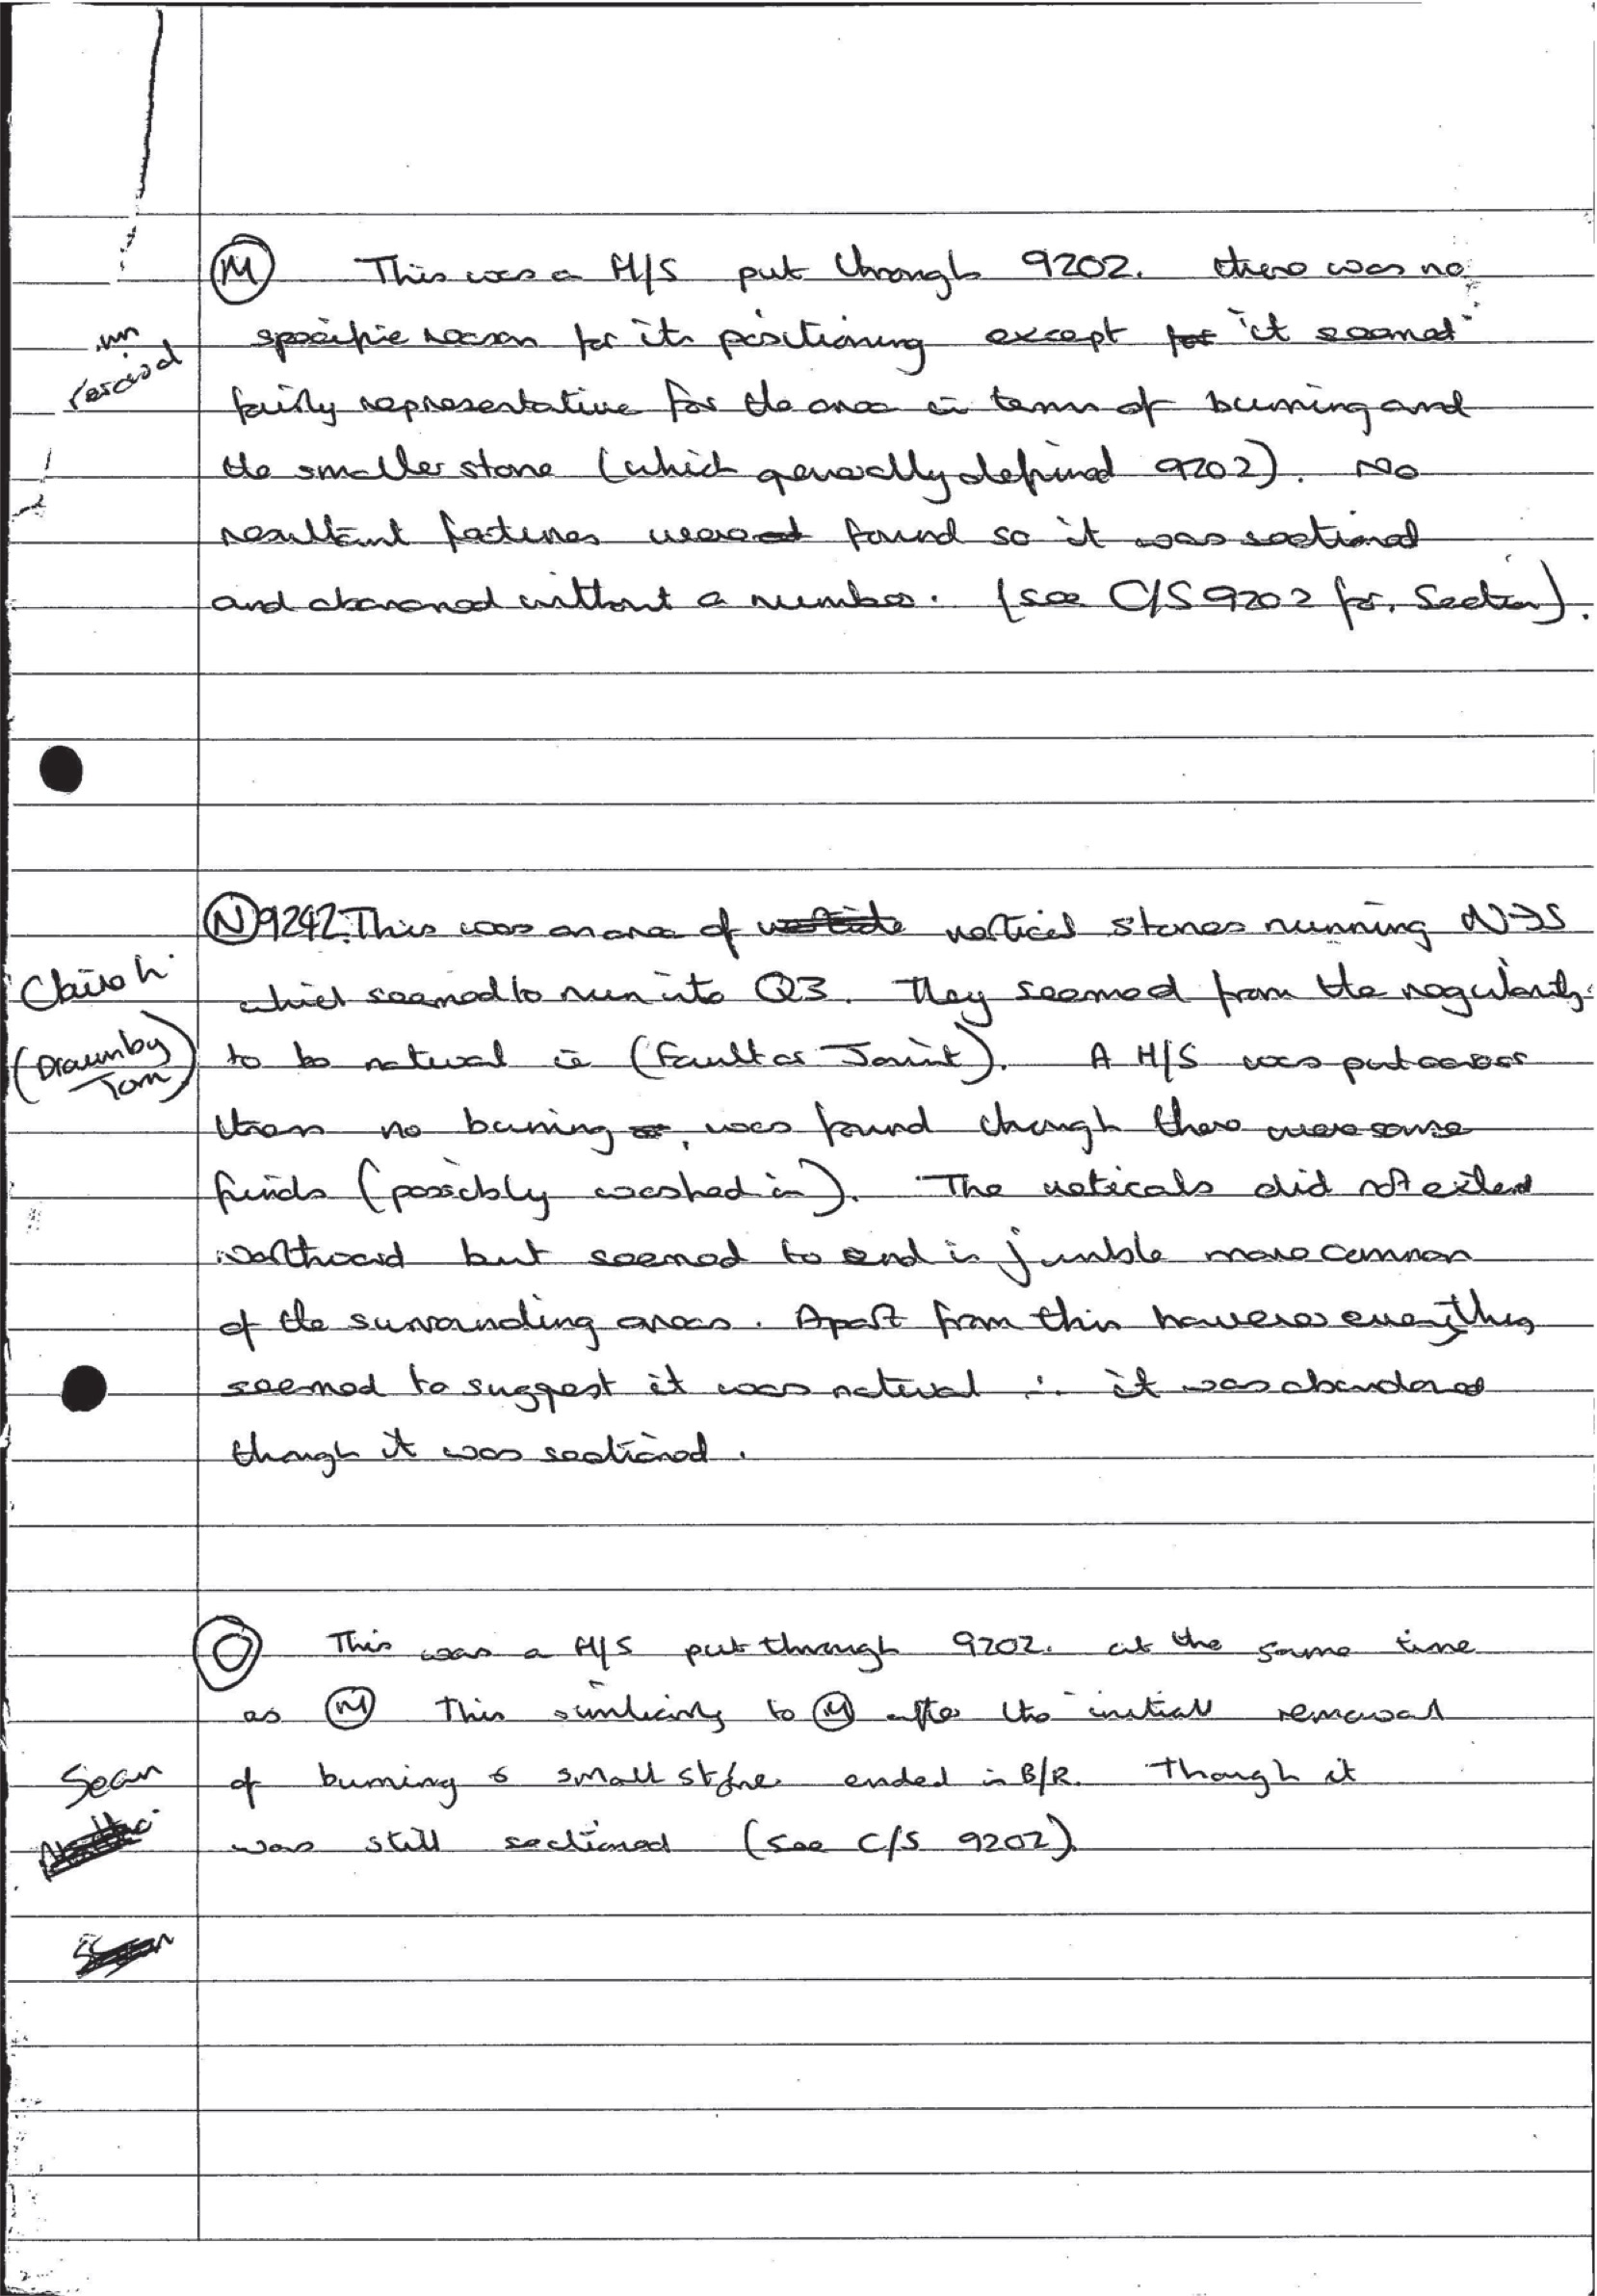 (M) This was a H/S put through 9202. there was no
specific reason for its positioning except for it seemed
fairly representative for the area in terms of burning and
the smaller stone (which generally defined 9202). No
resultant features were found so it was sectioned
and abanoned without a number. (see C/S 9202 for. Section).
(N) 9242. This was an area of vertical stones running N→S
Claire h.
which seemed to run into Q3. They seemed from the regularity
(Drawn by
Tom)
to be natural ie (Fault or Joint). A H/S was put across
them no burning was found though there were some
finds (possibly washed in). The veticals did not extend
northward but seemed to end in jumble more common
of the surrounding areas. Apart from this however everything
seemed to suggest it was natural ∴ it was abandoned
though it was sectioned.
(O) This was a H/S put through 9202. at the same time
as (M) This similiarly to (M) after the initial removal
Sean
of burning & small stone ended in B/R. Though it
was still sectioned (see C/S 9202)